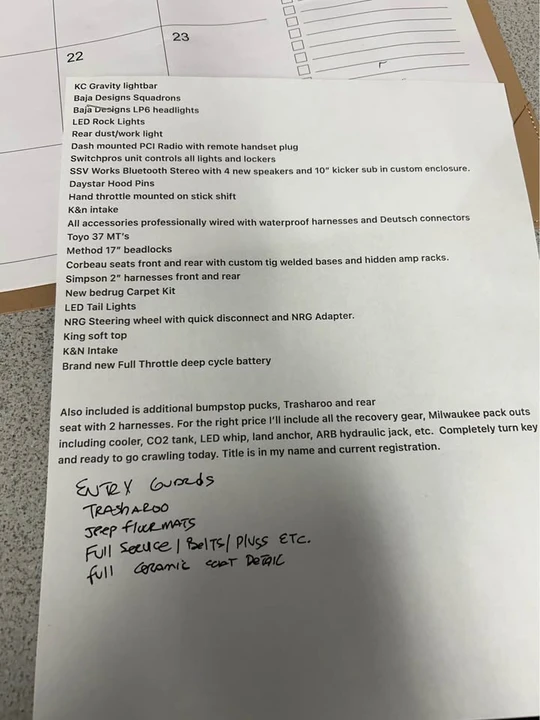 23
22
KC Gravity lightbar
Baja Designs Squadrons
Baja Designs LP6 headlights
LED Rock Lights
Rear dust/work light
Dash mounted PCI Radio with remote handset plug
Switchpros unit controls all lights and lockers
SSV Works Bluetooth Stereo with 4 new speakers and 10" kicker sub in custom enclosure.
Daystar Hood Pins
Hand throttle mounted on stick shift
K&n intake
All accessories professionally wired with waterproof harnesses and Deutsch connectors
Toyo 37 MT's
Method 17" beadlocks
Corbeau seats front and rear with custom tig welded bases and hidden amp racks.
Simpson 2" harnesses front and rear
New bedrug Carpet Kit
LED Tail Lights
NRG Steering wheel with quick disconnect and NRG Adapter.
King soft top
K&N Intake
Brand new Full Throttle deep cycle battery
Also included is additional bumpstop pucks, Trasharoo and rear
seat with 2 harnesses. For the right price I'll include all the recovery gear, Milwaukee pack outs
including cooler, CO2 tank, LED whip, land anchor, ARB hydraulic jack, etc. Completely turn key
and ready to go crawling today. Title is in my name and current registration.
ENTRY GUARDS
TRASHAROO
JEEP FLOOR MATS
Full SERVICE / BELTS / PLUGS ETC.
full CERAMIC COAT DETAIL